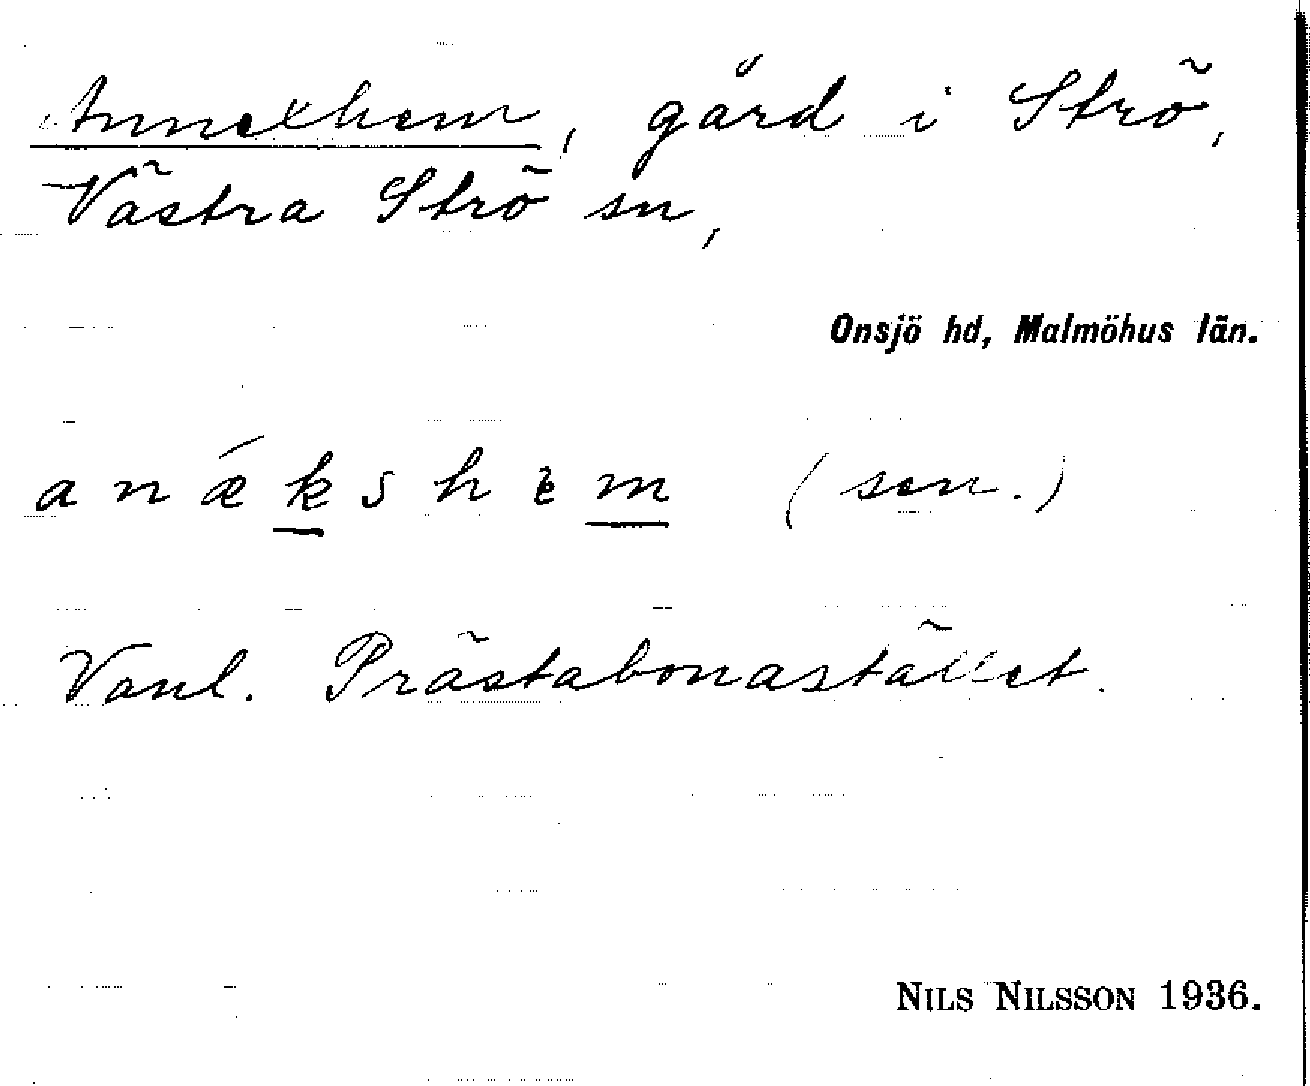 Annexhem, gård i Strö,
Västra Strö sn,
Onsjö hd, Malmöhus län.
anǽkshèm (sen.)
Vanl. Prästabonastället.
NILS NILSSON 1936.